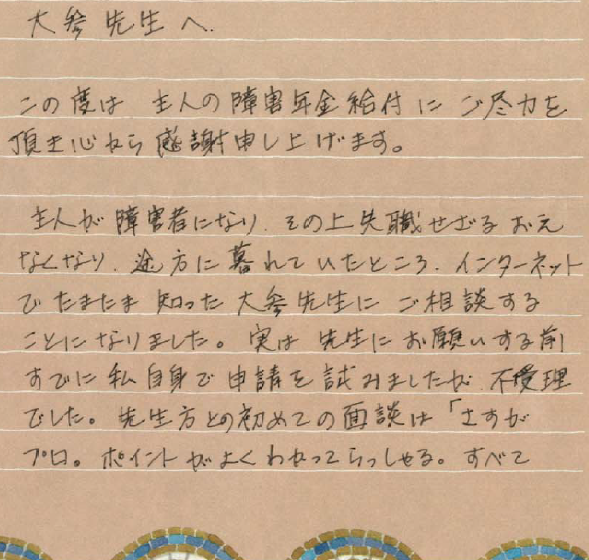 大参先生へ.
この度は 主人の障害年金給付に ご尽力を
頂き心から感謝申し上げます。
主人が障害者になり、その上失職せざるおえ
なくなり、途方に暮れていたところ、インターネット
でたまたま知った大参先生にご相談する
ことになりました。実は 先生にお願いする前
すでに私自身で申請を試みましたが、不受理
でした。先生方との初めての面談は「さすが
プロ。ポイントがよくわかってらっしゃる。すべて